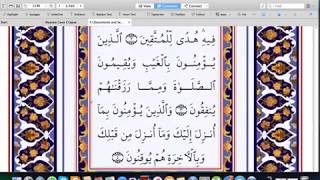 فِيهِ هُدًى لِّلْمُتَّقِينَ ۝ الَّذِينَ
يُؤْمِنُونَ بِالْغَيْبِ وَيُقِيمُونَ
الصَّلَوٰةَ وَمِمَّا رَزَقْنَٰهُمْ
يُنفِقُونَ ۝ وَالَّذِينَ يُؤْمِنُونَ بِمَا
أُنزِلَ إِلَيْكَ وَمَا أُنزِلَ مِن قَبْلِكَ
وَبِالْآخِرَةِ هُمْ يُوقِنُونَ ۝